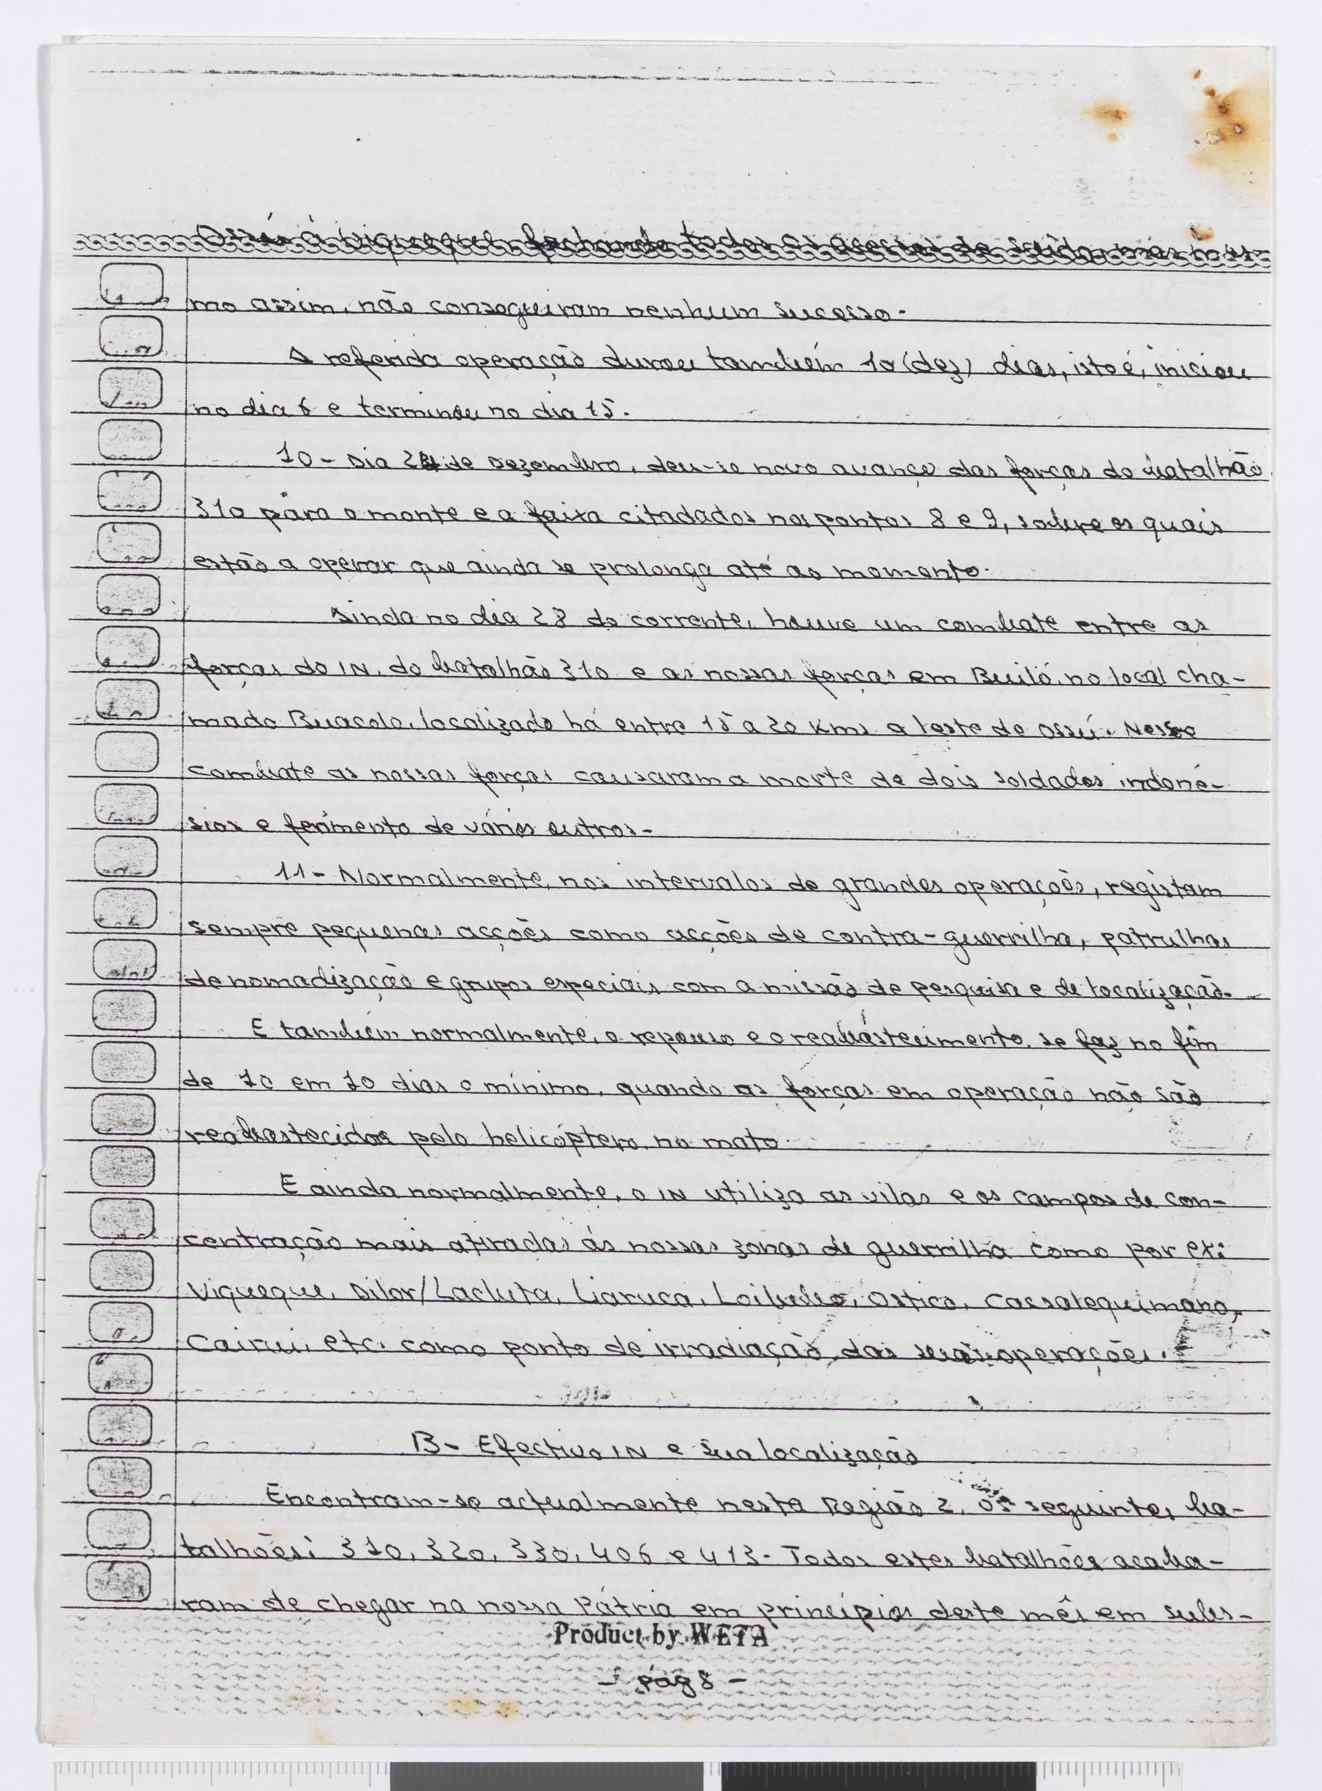 Ossú á Viqueque, fechando todos os acessos de saída, mas mes-
mo assim, não conseguiram nenhum sucesso.
A referida operação durou também 10 (dez) dias, isto é, iniciou
no dia 6 e terminou no dia 15.
10 - Dia 24 de Dezembro, deu-se novo avanço das forças do batalhão
310 pâra o monte e a faixa citadados nos pontos 8 e 9, sobre os quais
estão a operar que ainda se prolonga até ao momento.
Ainda no dia 28 do corrente, houve um combate entre as
forças do IN, do batalhão 310 e as nossas forças em Builó, no local cha-
mado Buacolo, localizado há entre 15 a 20 Kms a leste de Ossú. Nesse
combate as nossas forças causaram a morte de dois soldados indoné-
sios e ferimento de vários outros.
11 - Normalmente, nos intervalos de grandes operações, registam
sempre pequenas acções como acções de contra-guerrilha, patrulhas
de nomadização e grupos especiais com a missão de pesquisa e de localização.
E também normalmente, o repouso e o reabástecimento, se faz no fim
de 10 em 10 dias o mínimo, quando as forças em operação não são
reabastecidos pelo helicóptero no mato.
E ainda normalmente, o IN utiliza as vilas e os campos de con-
centração mais atiradas ás nossas zonas de guerrilha como por ex:
Viqueque, Dilor/Lacluta, Liaruca, Loihuno, Ostico, Cassalequimano,
Cairui, etc. como ponto de irradiação das operações.
B - Efectivo IN e sua localização
Encontram-se actualmente nesta Região 2, os seguintes ba-
talhões: 310, 320, 330, 406 e 413. Todos estes batalhões acaba-
ram de chegar na nossa Pátria em princípios deste mês em subs-
Product by WETA
- pág 8 -